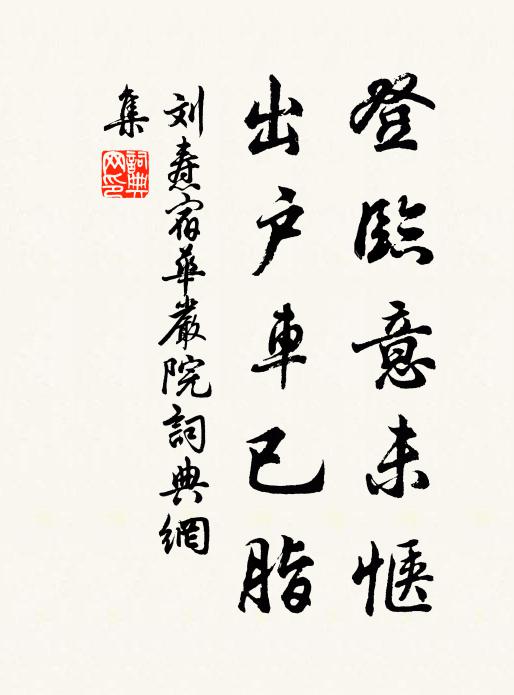 登臨意未愜
出户車已脂
刘焘宿華嚴院詞典網
集
詞典
网印